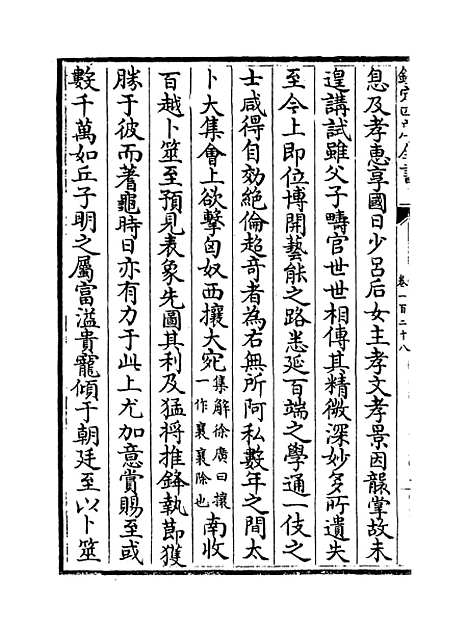 欽定四庫全書
卷一百二十八
息及孝惠享國日少呂后女主孝文孝景因襲掌故未
遑講試雖父子疇官世世相傳其精微深妙多所遺失
至今上即位博開藝能之路悉延百端之學通一伎之
士咸得自効絶倫超竒者為右無所阿私數年之間太
卜大集會上欲擊匈奴西攘大宛集解徐廣曰攘一作襄襄除也南收
百越卜筮至預見表象先圖其利及猛将推鋒執節獲
勝于彼而蓍龜時日亦有力于此上尤加意賞賜至或
數千萬如丘子明之屬富溢貴寵傾于朝廷至以卜筮